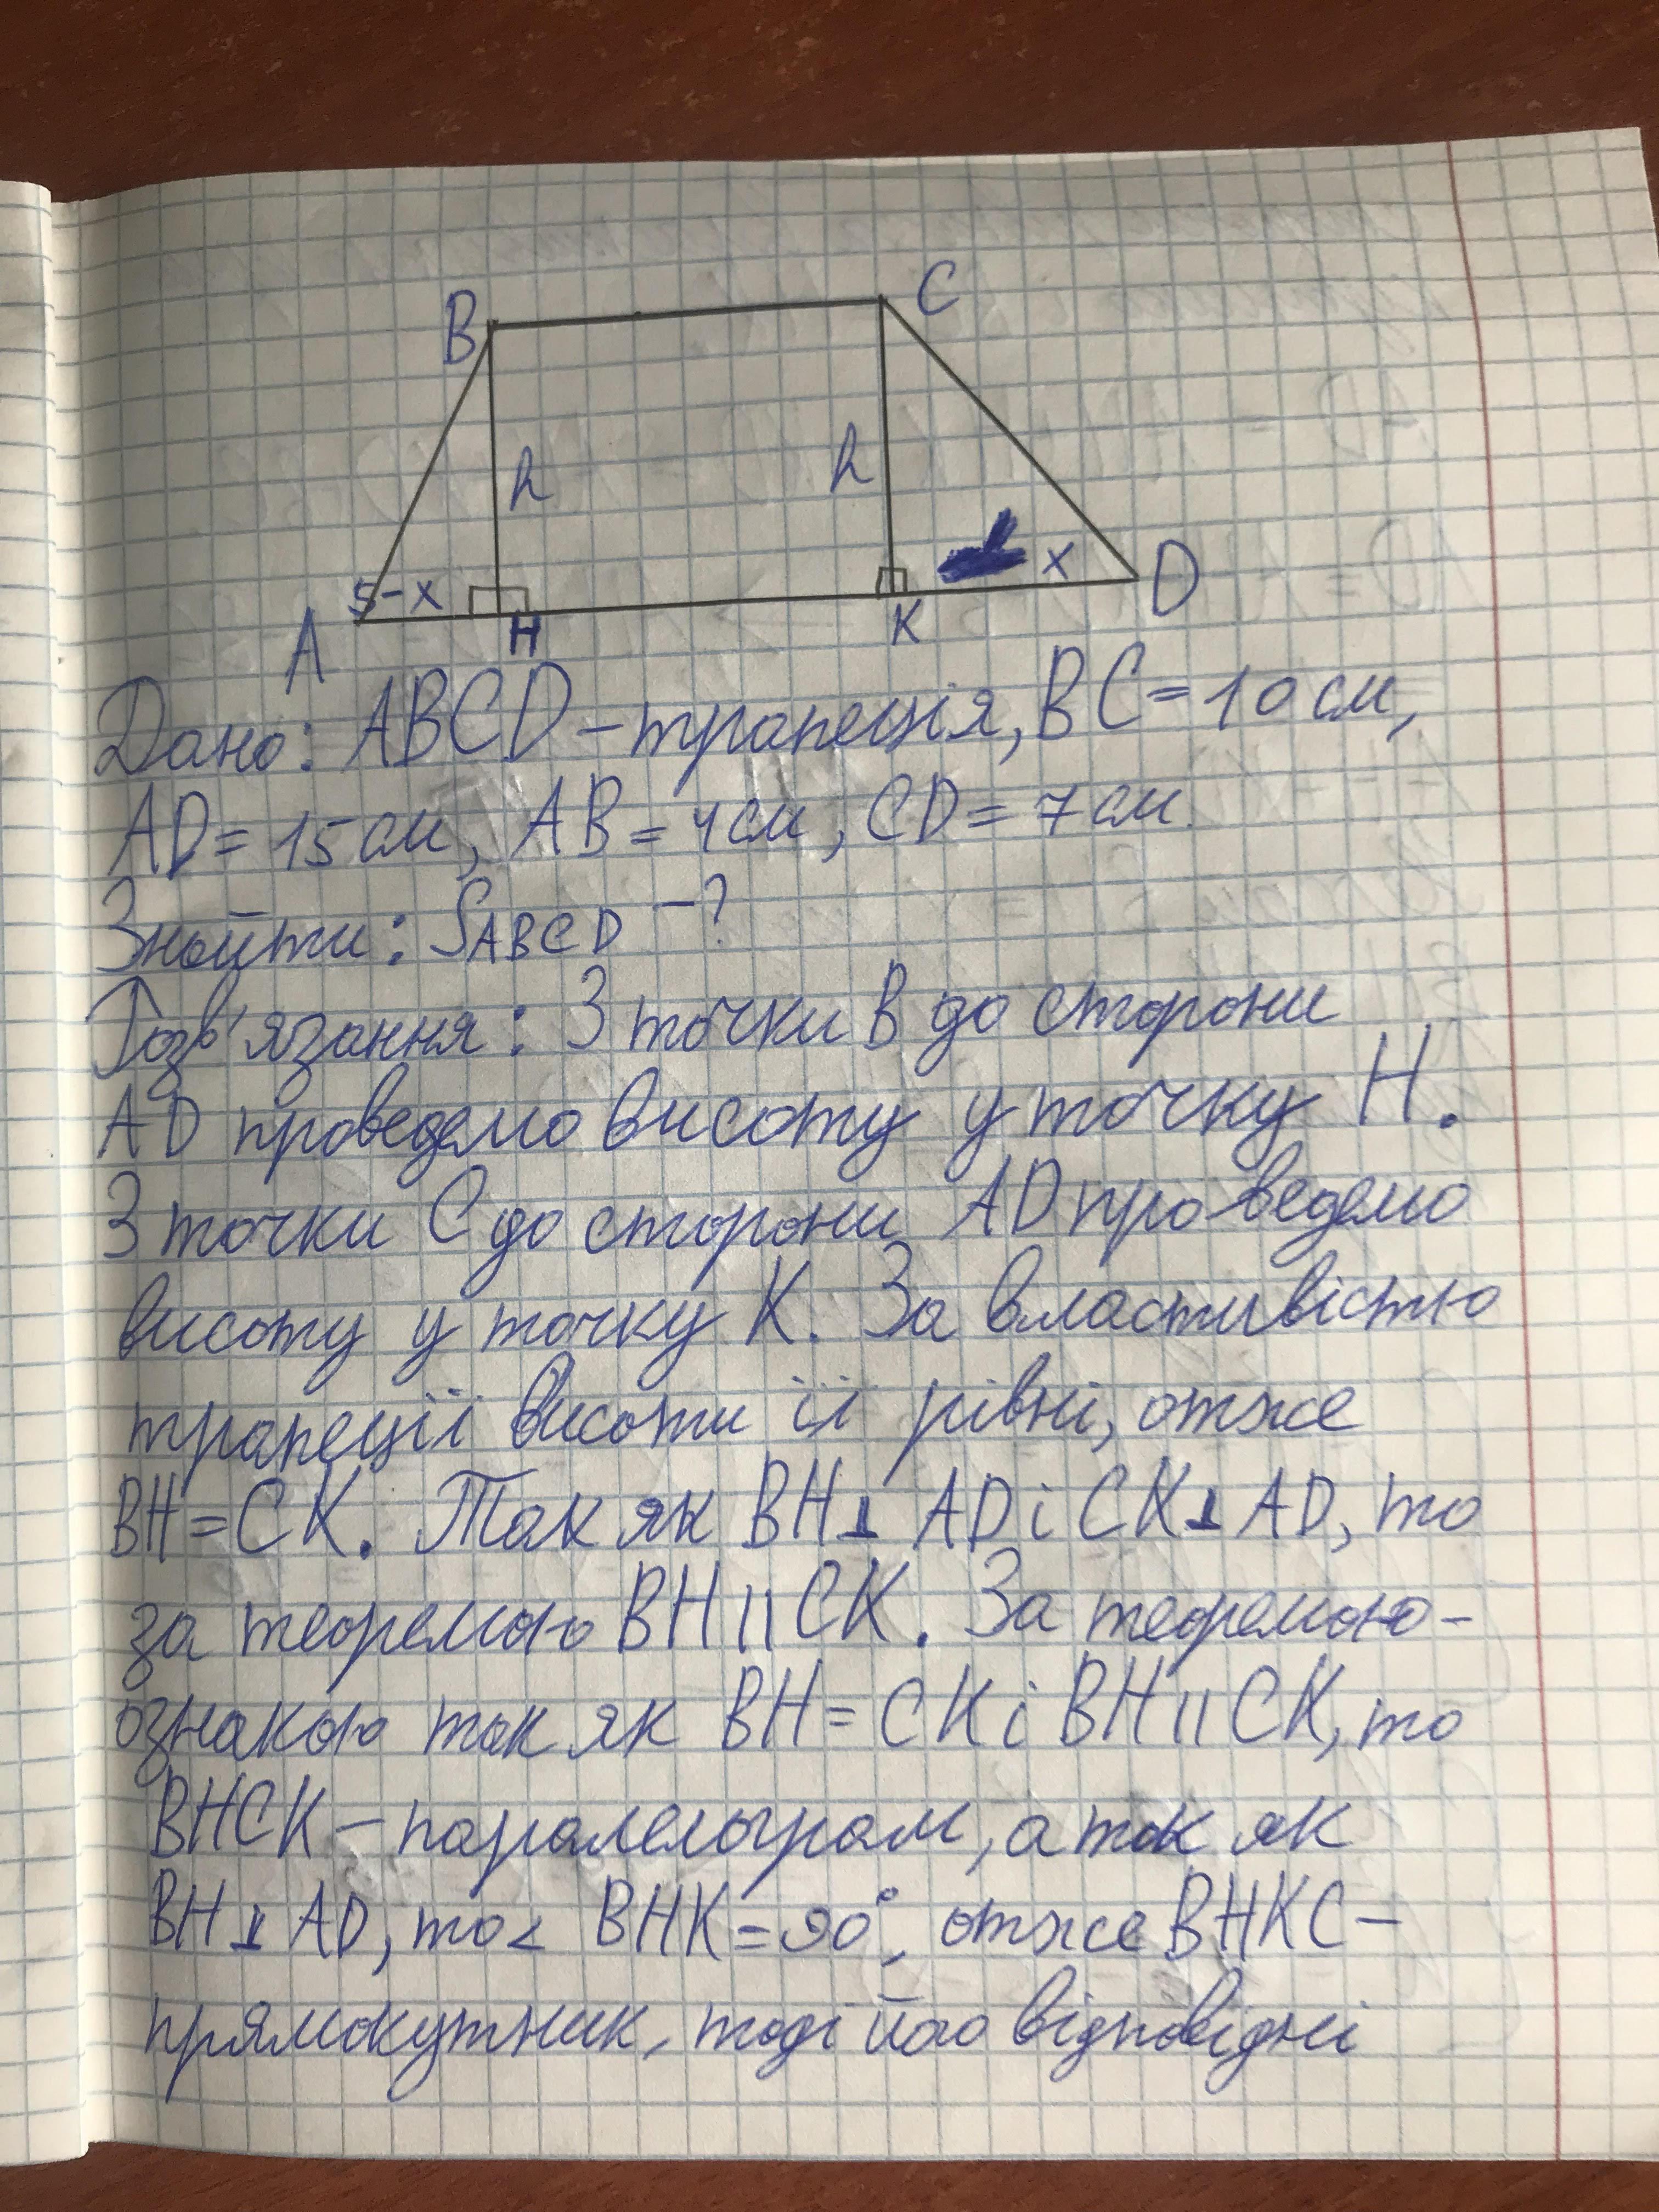 B
C
h
h
5-x
x
A
H
K
D
Дано: ABCD – трапеція, BC = 10 см,
AD = 15 см, AB = 4 см, CD = 7 см.
Знайти: SABCD – ?
Розв'язання: З точки B до сторони
AD проведемо висоту у точку H.
З точки C до сторони AD проведемо
висоту у точку K. За властивістю
трапеції висоти її рівні, отже
BH = CK. Так як BH ⊥ AD і CK ⊥ AD, то
за теоремою BH || CK. За теоремою-
ознакою так як BH = CK і BH || CK, то
BHCK – паралелограм, а так як
BH ⊥ AD, то < BHK = 90°, отже BHKC –
прямокутник, тоді його відповідні